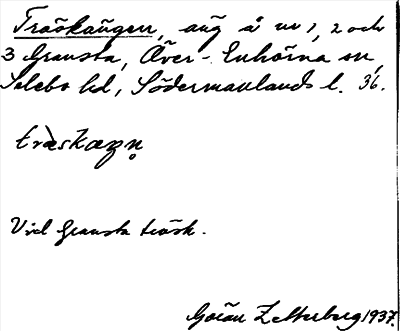 Träskängen, äng å nr 1, 2 och
3 Gransta, Över-Enhörna sn,
Selebo hd, Södermanlands l. 36.
träskæŋn̥
Vid Gransta träsk.
Göran Zetterberg 1937.